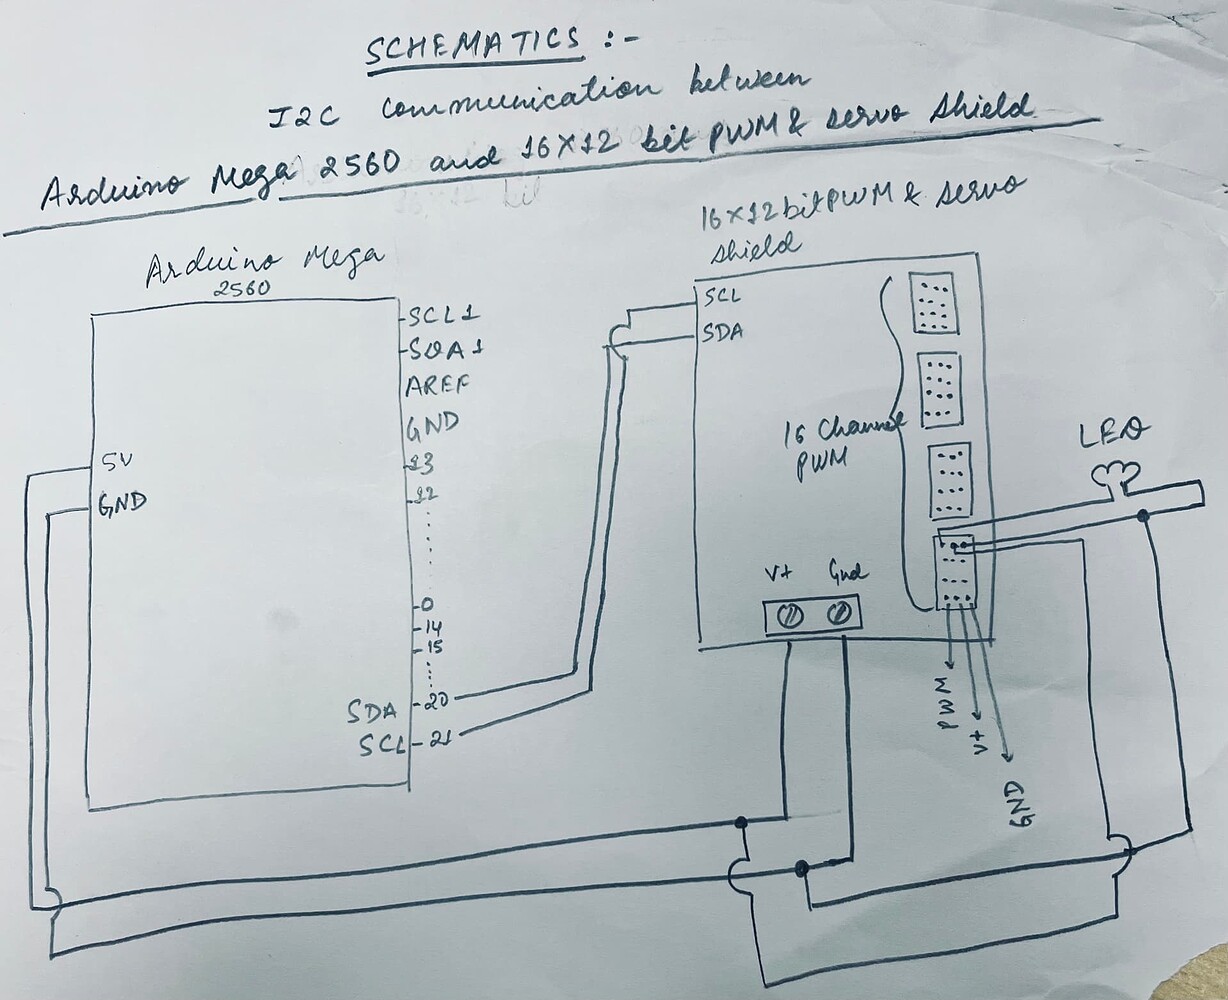 SCHEMATICS :-
I2C communication between
Arduino Mega 2560 and 16X12 bit PWM & servo shield
16X12bitPWM & servo
shield
Arduino Mega
2560
SCL1
SDA1
AREF
GND
13
12
0
14
15
SDA 20
SCL 21
5V
GND
SCL
SDA
16 Channel
PWM
V+ Gnd
LED
PWM
V+
GND